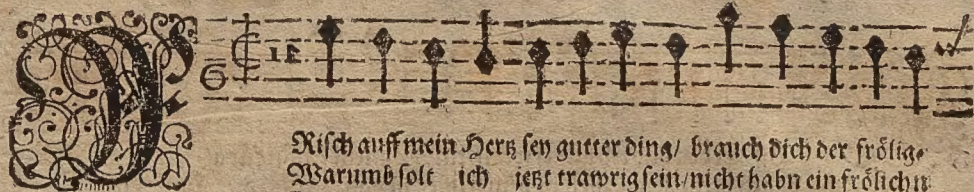 Risch auff mein Hertz sey gutter ding/ brauch dich der frölig-
Warumb solt ich jetzt trawrig sein/nicht habn ein frölichn